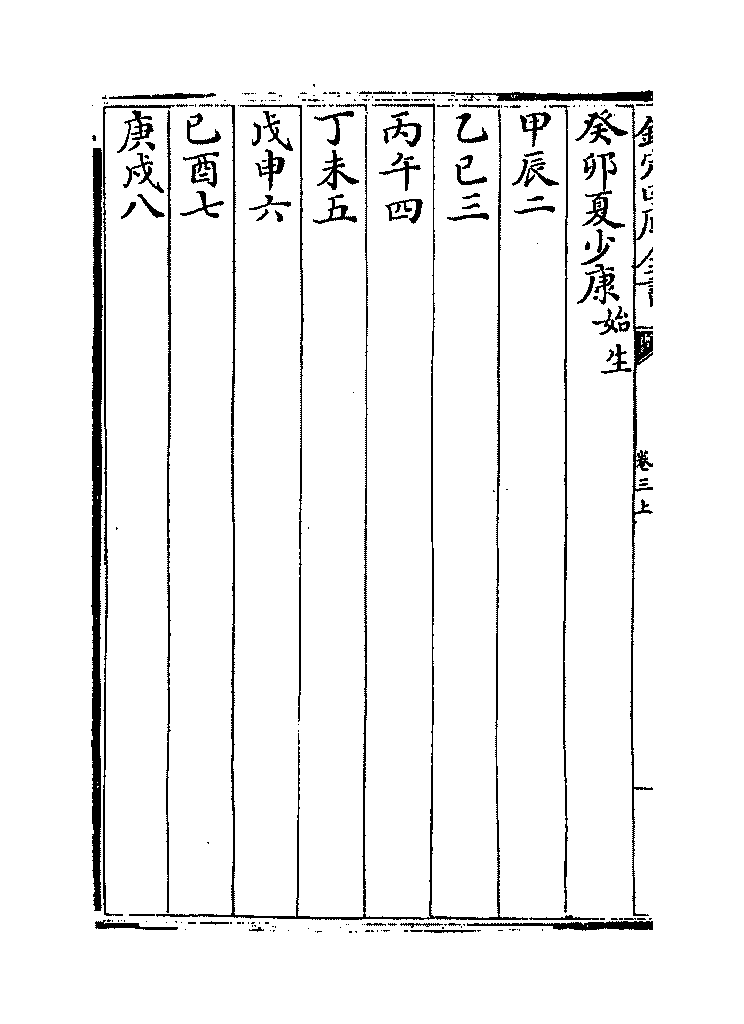 欽定四庫全書
卷三上
癸卯夏少康始生
甲辰二
乙巳三
丙午四
丁未五
戊申六
己酉七
庚戌八